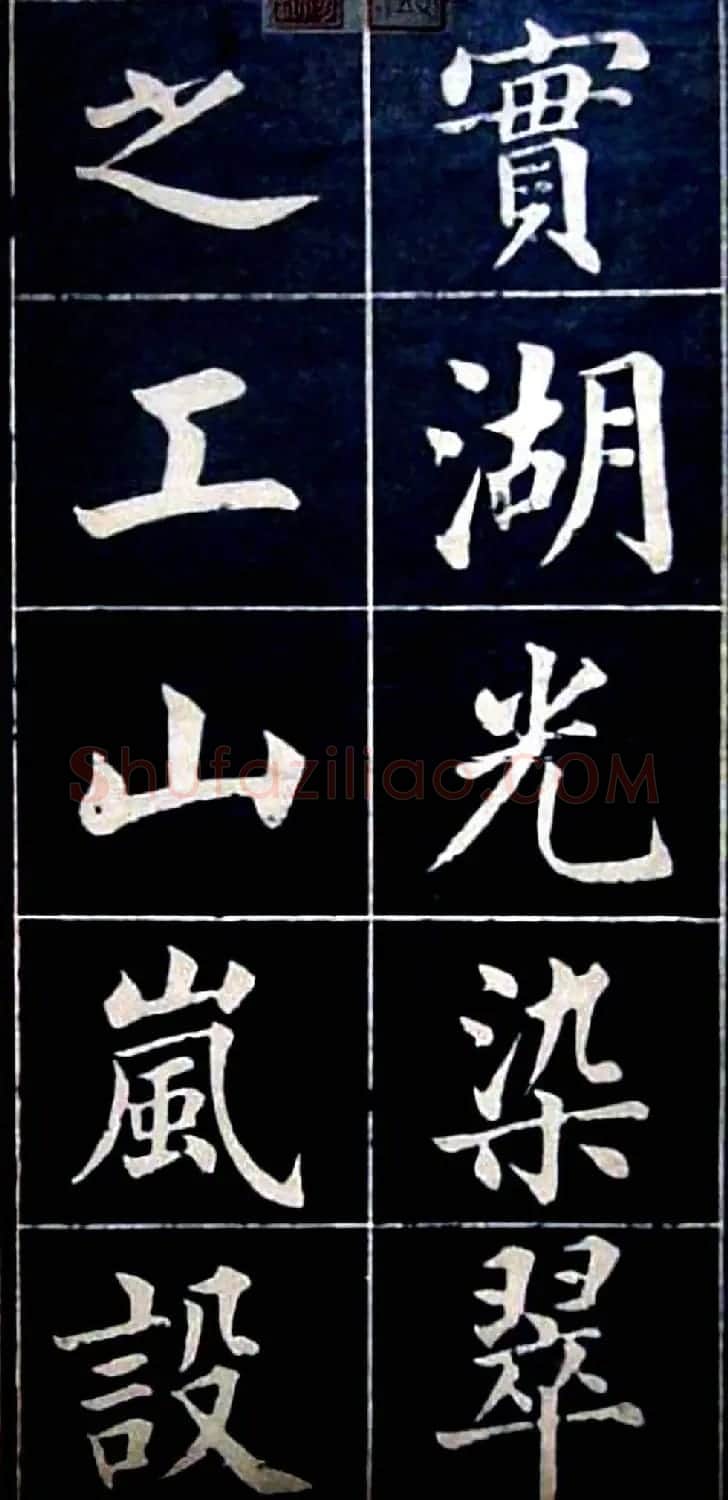 實湖光染翠
之工山嵐設
Shufaziliao.COM